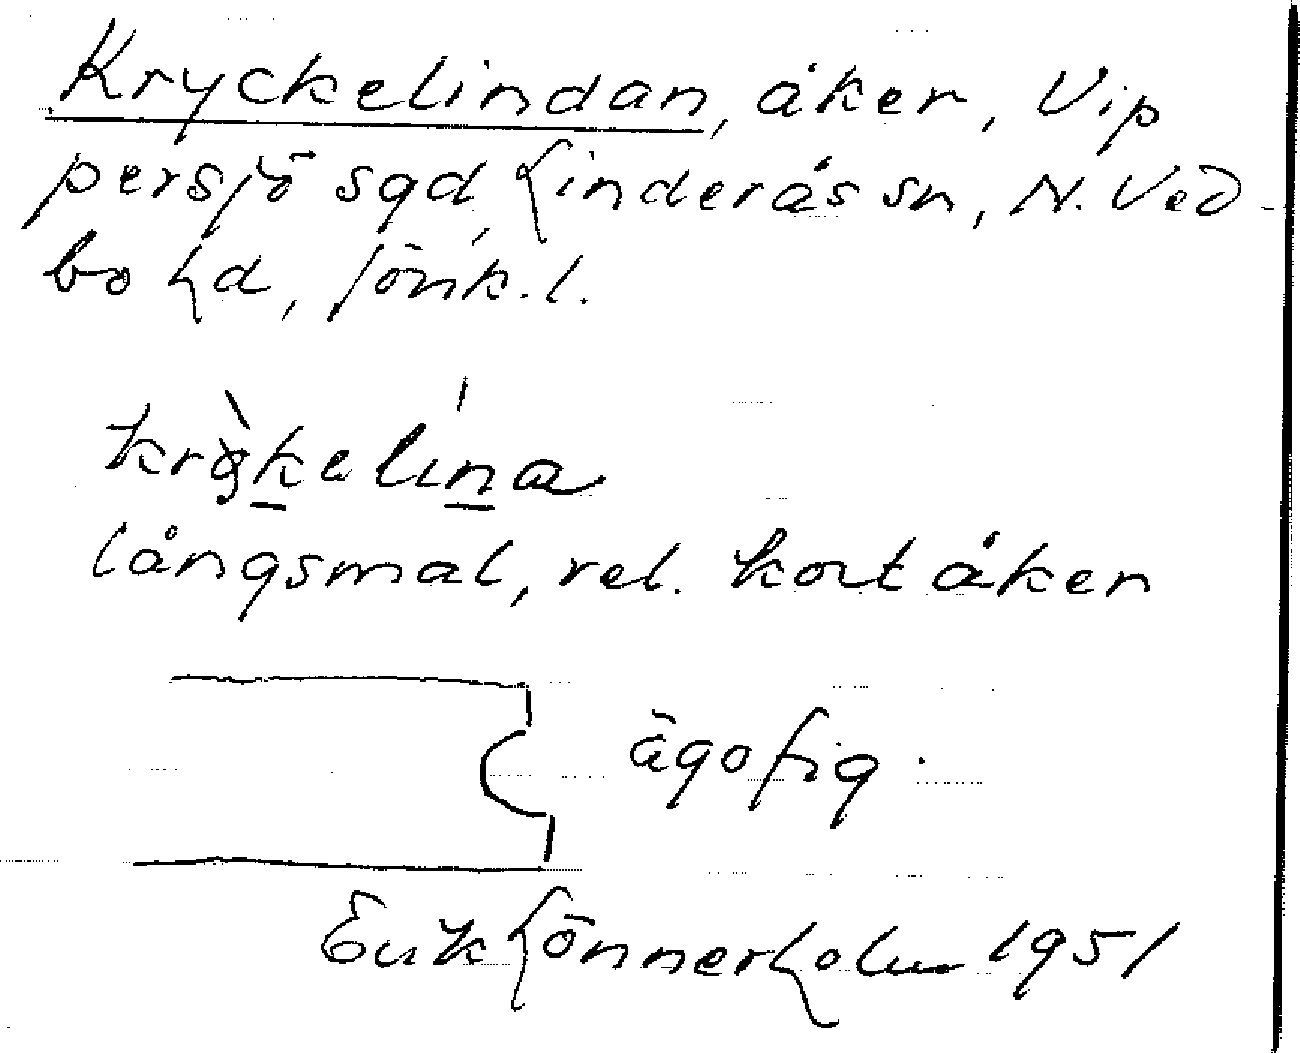 Kryckelindan, åker, Vip
persjö sgd, Linderås sn, N. Ved
bo hd, Jönk. l.
långsmal, rel. kort åker
ägofig.
Erik Lönnerholm 1951